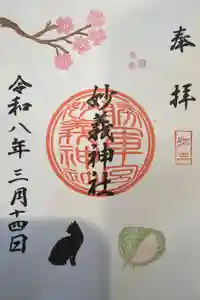 奉拝
妙義神社
令和八年三月十四日